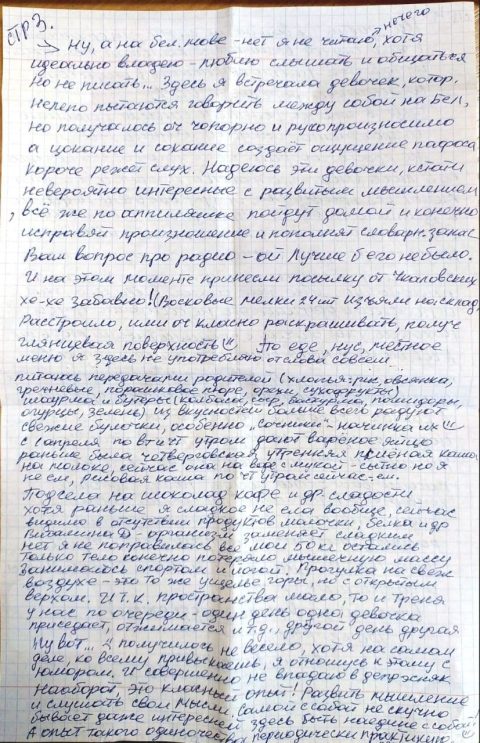 СТР 3.
нечего
→ Ну, а на бел. мове - нет я не читаю, хотя
идеально владею - люблю слышать и общаться
но не писать... Здесь я встречала девочек, котор.
нелепо пытаются говорить между собой на бел,
но получалось оч чопорно и
а цокание и создаёт ощущение пафоса
короче режет слух. Надеюсь эти девочки, кстати
невероятно интересные с развитым мышлением,
всё же по аппиляшке пойдут домой и конечно
исправят произношение и пополнят словарн. запас
Ваш вопрос про радио - ой Лучше б его не было.
И на этом моменте принесли посылку от Чкаловских
хе-хе забавно! (Восковые мелки 24 шт изъяли на склад,
Расстроило, ими оч класно раскрашивать, получ
глянцевая поверхность По еде, нус, местное
меню я здесь не употребляю от слова совсем
питаюсь передачами родителей (хлопья: рис, овсянка,
гречневые, порошковое пюре, орехи, сухофрукты)
и бутеры (колбаса, сыр, помидоры,
огурцы, зелень) из вкусностей больше всего радуют
свежие булочки, особенно "сочники" - начинка
с 1 апреля по вт и чт утром дают варёное яйцо
раньше была четверговская утренняя пшёная каша
на молоке, сейчас она на воде с мукой - сытно но я
не ем, рисовая каша по чт утрам сейчас - ем.
Подсела на шоколад кафе и др. сладости
хотя раньше я сладкое не ела вообще, сейчас
видимо в отсутствии продуктов молочки, белка и др
Витамина Д - организм заменяет сладким
Нет я не поправилась все мои 50 кг остались
только тело конечно потеряло мышечную массу
занималась спортом и йогой. Прогулка на свеж
воздухе - это то же ущелье горы, но с открытым
верхом. И т.к. пространства мало, то и треня
у нас по очереди - один день одна девочка
приседает, отжимается и т.д., другой день другая
Ну вот... получилось не весело, хотя на самом
деле, ко всему привыкаешь, я отношусь к этому с
юмором. И совершенно не впадаю в депрэсняк
Наоборот, это классный опыт! Развить мышление
и слушать свои мысли. Самой с собой не скучно!
бывает даже интересней здесь быть наедине с собой!
А опыт такого одиночества периодически практикую.